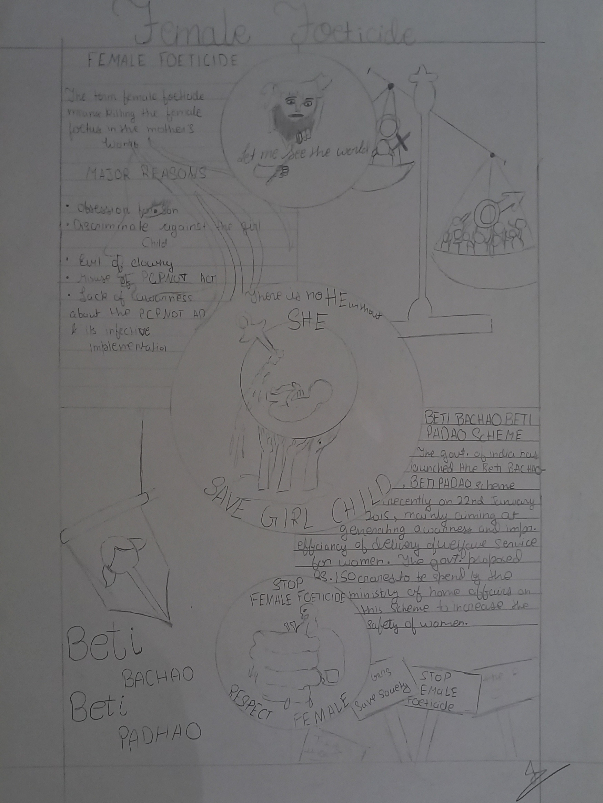 Female Foeticide
FEMALE FOETICIDE
The term female foeticide
means killing the female
foetus in the mothers
womb
MAJOR REASONS
• Obsession for son
• Discriminate against the girl
Child
• Evil of dowry
• misuse of PCPNDT ACT
• Lack of awareness
about the PCPNDT AD
& its infective
implementation
let me see the world
There is no HE without
SHE
SAVE GIRL CHILD
BETI BACHAO BETI
PADAO SCHEME
The govt. of india has
launched the Beti BACHAO-
BETI PADAO scheme
recently on 22nd January
2015, mainly aiming at
generating awareness and
efficiency of delivery of welfare service
for women. The govt. proposed
150 crores to be spend by the
ministry of home affairs on
this scheme to increase the
safety of women.
STOP
FEMALE FOETICIDE
RESPECT FEMALE
Beti
BACHAO
Beti
PADHAO
Save
STOP
EMALE
Foeticide